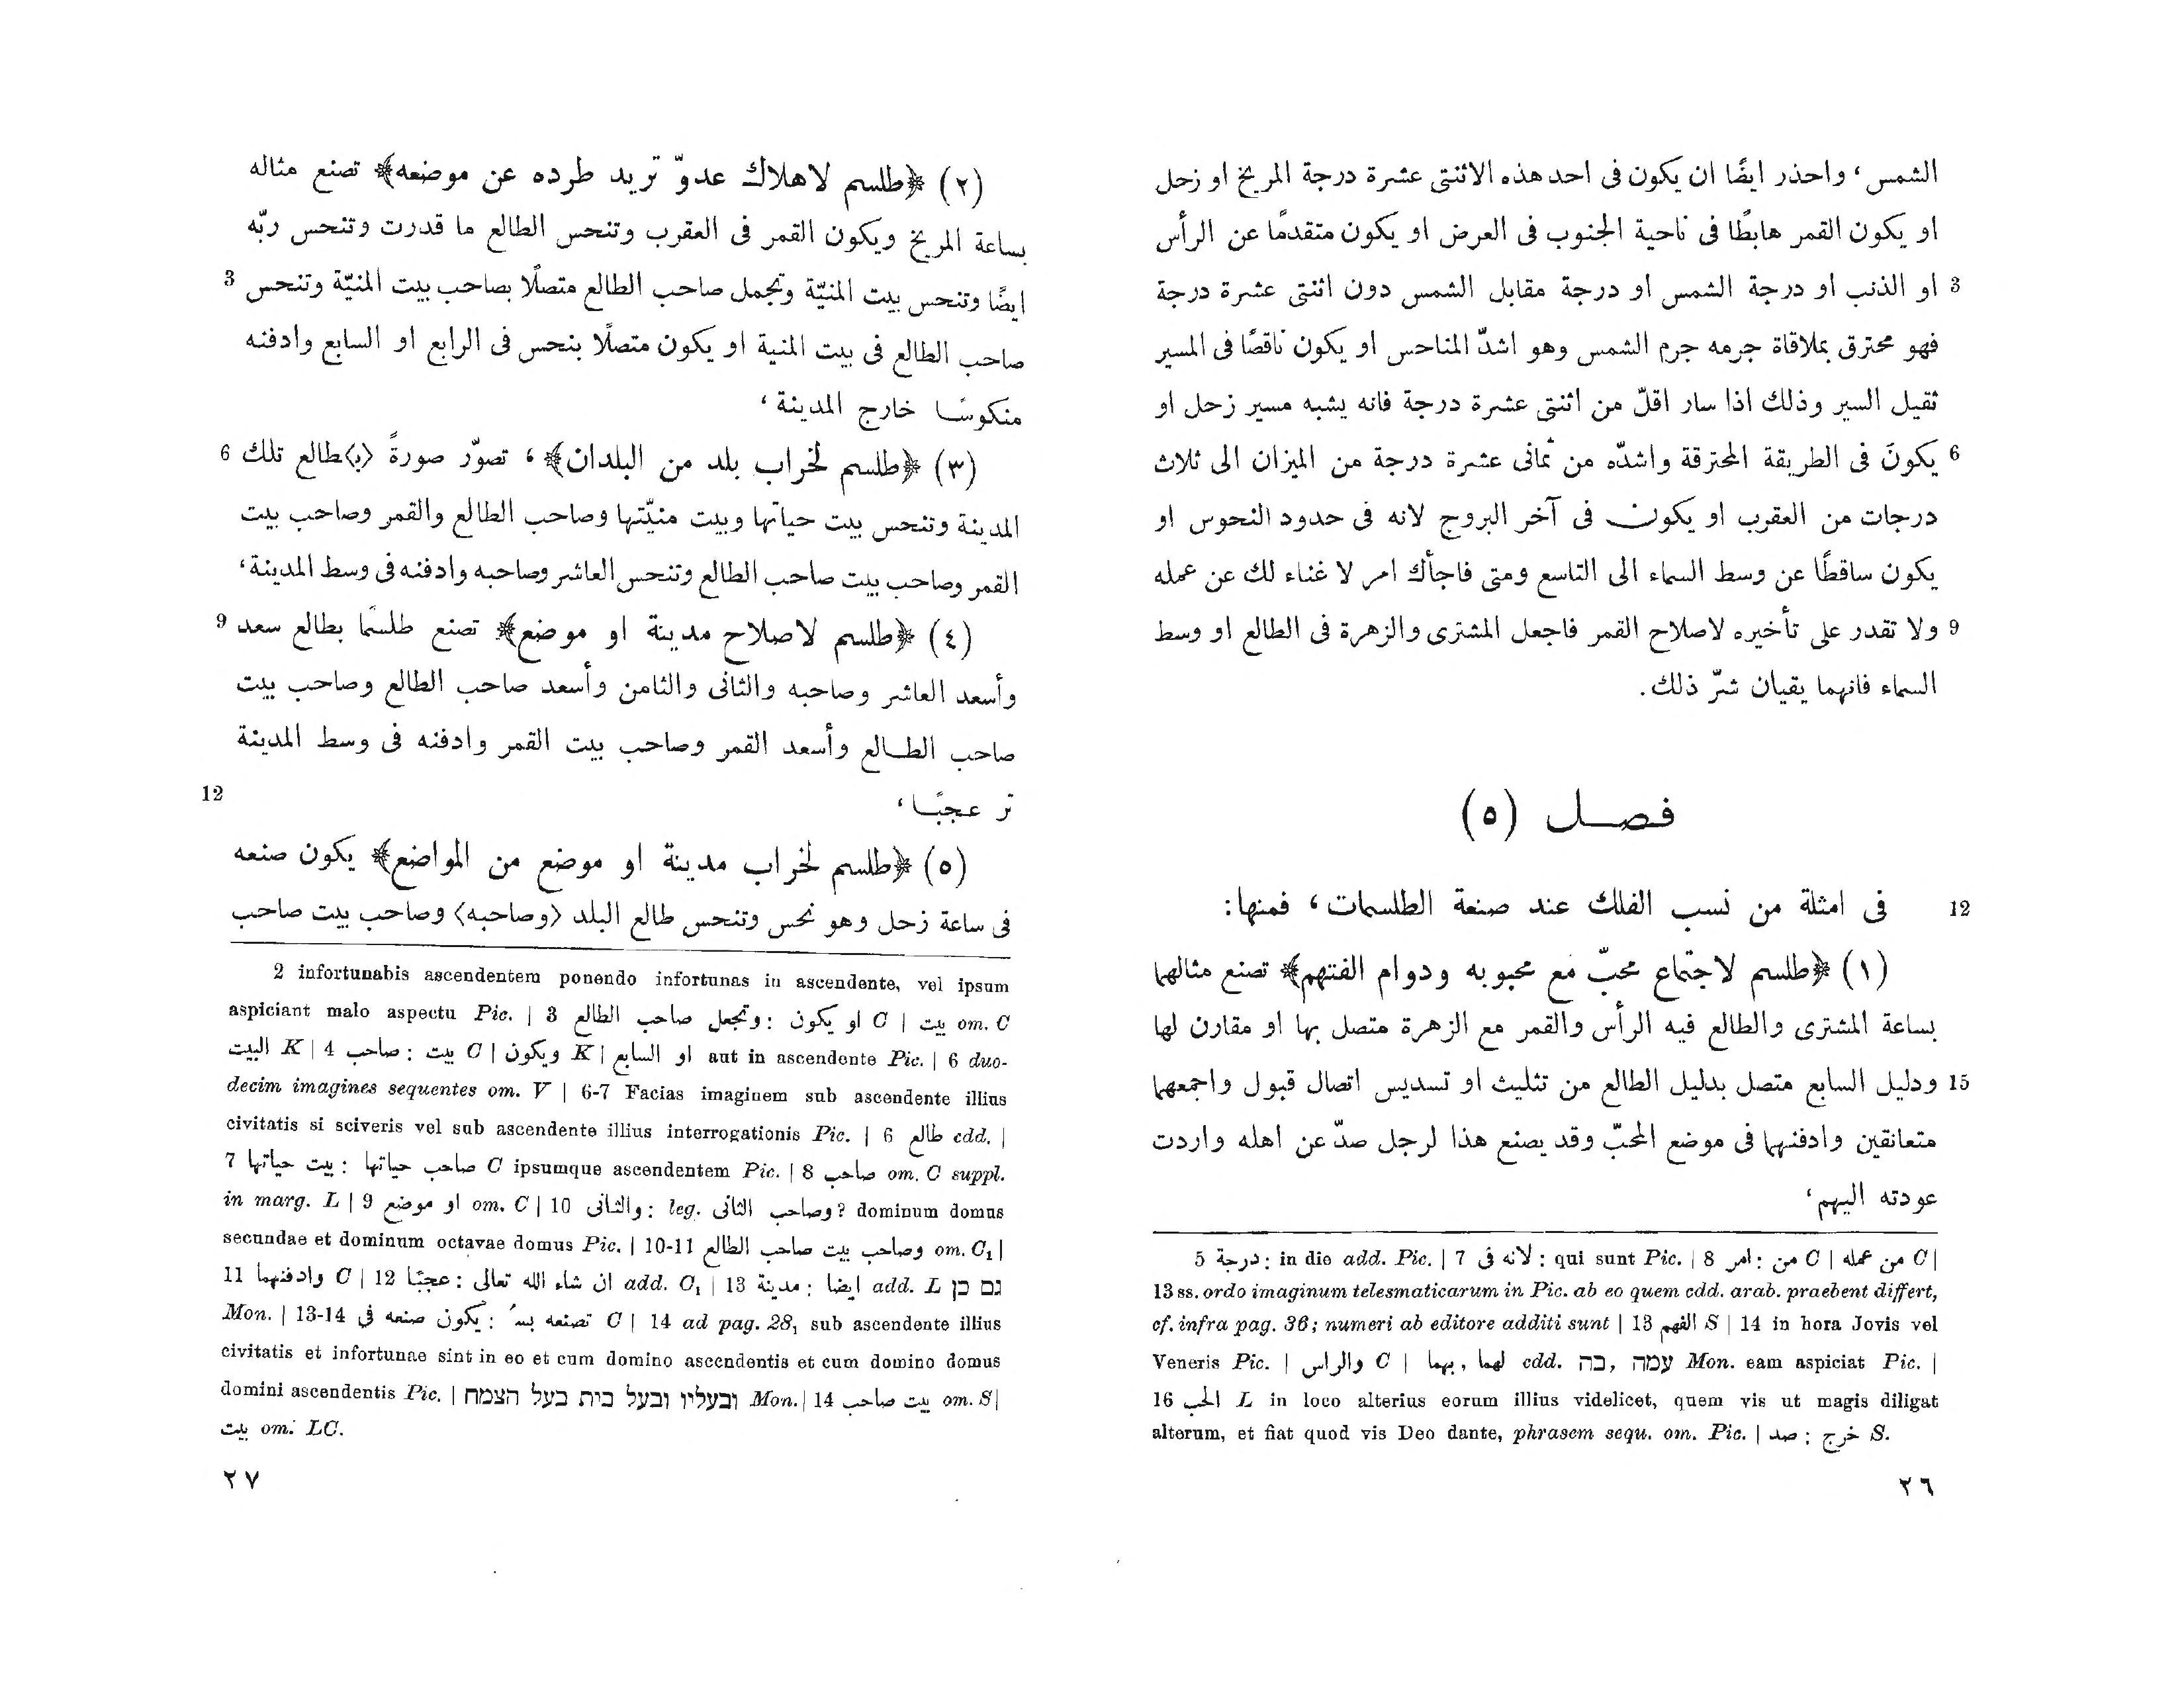 الشمس، واحذر ايضًا ان يكون فى احد هذه الاثنتى عشرة درجة المريخ او زحل
او يكون القمر هابطًا فى ناحية الجنوب فى العرض او يكون متقدمًا عن الرأس
3 او الذنب او درجة الشمس او درجة مقابل الشمس دون اثنتى عشرة درجة
فهو محترق بملاقاة جرمه جرم الشمس وهو اشدّ المناحس او يكون ناقصًا فى المسير
ثقيل السير وذلك اذا سار اقلّ من اثنتى عشرة درجة فانه يشبه مسير زحل او
6 يكونَ فى الطريقة المحترقة واشدّه من ثمانى عشرة درجة من الميزان الى ثلاث
درجات من العقرب او يكون فى آخر البروج لانه فى حدود النحوس او
يكون ساقطًا عن وسط السماء الى التاسع ومتى فاجأك امر لا غناء لك عن عمله
9 ولا تقدر على تأخيره لاصلاح القمر فاجعل المشترى والزهرة فى الطالع او وسط
السماء فانهما يقيان شرّ ذلك.
فصل (٥)
12 فى امثلة من نسب الفلك عند صنعة الطلسمات، فمنها:
(١) ﴿طلسم لاجتماع محبّ مع محبوبه ودوام الفتهم﴾ تصنع مثالهما
بساعة المشترى والطالع فيه الرأس والقمر مع الزهرة متصل بها او مقارن لها
15 ودليل السابع متصل بدليل الطالع من تثليث او تسديس اتصال قبول واجمعهما
متعانقين وادفنهما فى موضع المحبّ وقد يصنع هذا لرجل صدّ عن اهله واردت
عودته اليهم،
5 درجة: in die add. Pic. | 7 لانه فى: qui sunt Pic. | 8 امر: من C | من عمله C |
13 ss. ordo imaginum telesmaticarum in Pic. ab eo quem cdd. arab. praebent differt,
cf. infra pag. 36; numeri ab editore additi sunt | 13 الفهم S | 14 in hora Jovis vel
Veneris Pic. | والراس C | لهما, بهما cdd. עמה, בה Mon. eam aspiciat Pic. |
16 الحب L in loco alterius eorum illius videlicet, quem vis ut magis diligat
alterum, et fiat quod vis Deo dante, phrasem sequ. om. Pic. | صد: خرج S.
٢٦
(٢) ﴿طلسم لاهلاك عدوّ تريد طرده عن موضعه﴾ تصنع مثاله
بساعة المريخ ويكون القمر فى العقرب وتنحس الطالع ما قدرت وتنحس ربّه
3 ايضًا وتنحس بيت المنيّة وتجعل صاحب الطالع متصلًا بصاحب بيت المنيّة وتنحس
صاحب الطالع فى بيت المنية او يكون متصلًا بنحس فى الرابع او السابع وادفنه
منكوسًا خارج المدينة،
6 (٣) ﴿طلسم لخراب بلد من البلدان﴾، تصوّر صورةً ⟨ب⟩طالع تلك
المدينة وتنحس بيت حياتها وبيت منيّتها وصاحب الطالع والقمر وصاحب بيت
القمر وصاحب بيت صاحب الطالع وتنحس العاشر وصاحبه وادفنه فى وسط المدينة،
9 (٤) ﴿طلسم لاصلاح مدينة او موضع﴾ تصنع طلسمًا بطالع سعد
وأسعد العاشر وصاحبه والثانى والثامن وأسعد صاحب الطالع وصاحب بيت
صاحب الطالع وأسعد القمر وصاحب بيت القمر وادفنه فى وسط المدينة
12 تر عجبًا،
(٥) ﴿طلسم لخراب مدينة او موضع من المواضع﴾ يكون صنعه
فى ساعة زحل وهو نحس وتنحس طالع البلد ⟨وصاحبه⟩ وصاحب بيت صاحب
2 infortunabis ascendentem ponendo infortunas in ascendente, vel ipsum
aspiciant malo aspectu Pic. | 3 وتجعل صاحب الطالع: او يكون C | بيت om. C
البيت K | 4 صاحب: بيت C | ويكون K | او السابع aut in ascendente Pic. | 6 duo-
decim imagines sequentes om. V | 6-7 Facias imaginem sub ascendente illius
civitatis si sciveris vel sub ascendente illius interrogationis Pic. | 6 طالع cdd. |
7 بيت حياتها: صاحب حياتها C ipsumque ascendentem Pic. | 8 صاحب om. C suppl.
in marg. L | 9 او موضع om. C | 10 والثانى: leg. وصاحب الثانى? dominum domus
secundae et dominum octavae domus Pic. | 10-11 وصاحب بيت صاحب الطالع om. C₁ |
11 وادفنهما C | 12 عجبًا: ان شاء الله تعالى add. C₁ | 13 مدينة: ايضا add. L גם כן
Mon. | 13-14 يكون صنعه فى: تصنعه بسا C | 14 ad pag. 28, sub ascendente illius
civitatis et infortunae sint in eo et cum domino ascendentis et cum domino domus
domini ascendentis Pic. | ובעליו ובעל בית בעל הצמח Mon. | 14 بيت صاحب om. S |
بيت om. LC.
٢٧